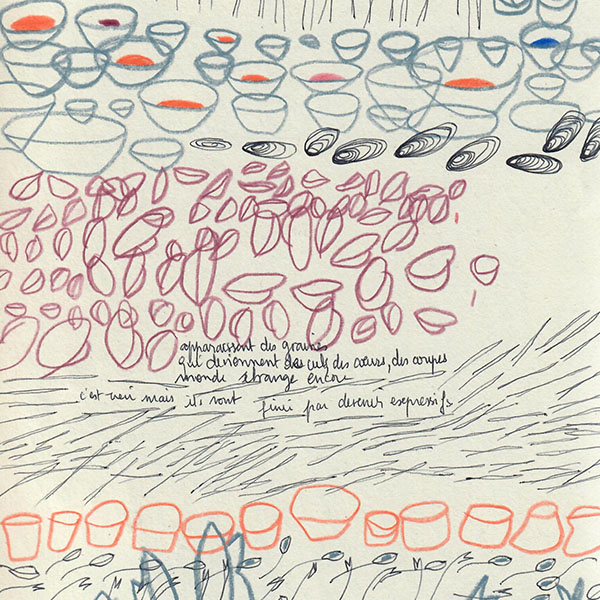 apparaissent des graines
qui deviennent des culs, des cœurs, des coupes
monde étrange encore
c'est vrai mais ils sont fini par devenir expressifs